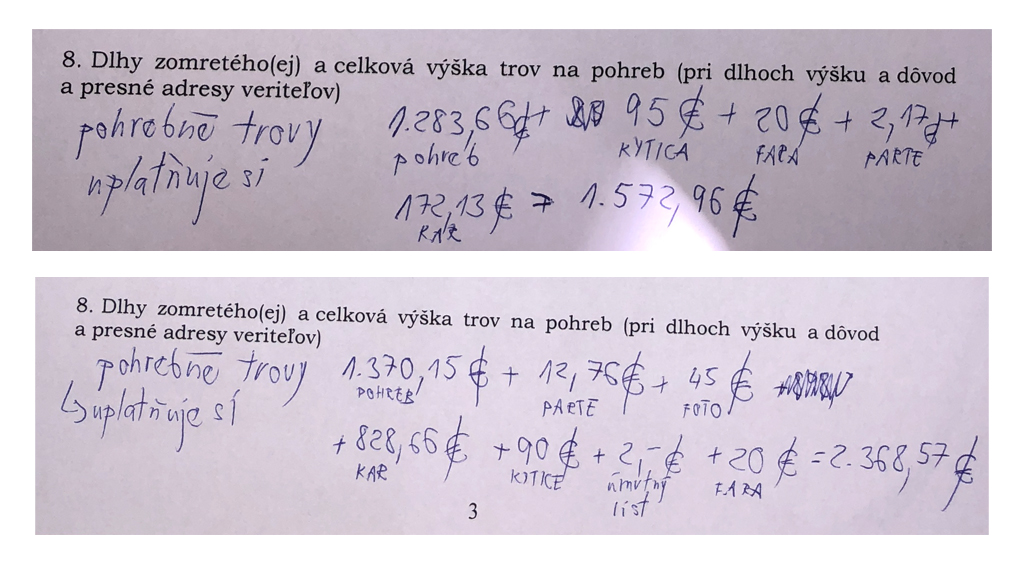 8. Dlhy zomretého(ej) a celková výška trov na pohreb (pri dlhoch výšku a dôvod
a presné adresy veriteľov)
pohrebné trovy 1.283,66€+ 95€ + 20€ + 2,17€+
pohreb KYTICA FARA PARTE
uplatňuje si 172,13€ = 1.572,96€
KAR
8. Dlhy zomretého(ej) a celková výška trov na pohreb (pri dlhoch výšku a dôvod
a presné adresy veriteľov)
pohrebné trovy 1.370,15€ + 12,76€ + 45€
POHREB PARTE FOTO
↳uplatňuje sí
+ 828,66€ + 90€ + 2,-€ + 20€ = 2.368,57€
KAR KYTICE úmrtný FARA
list
3